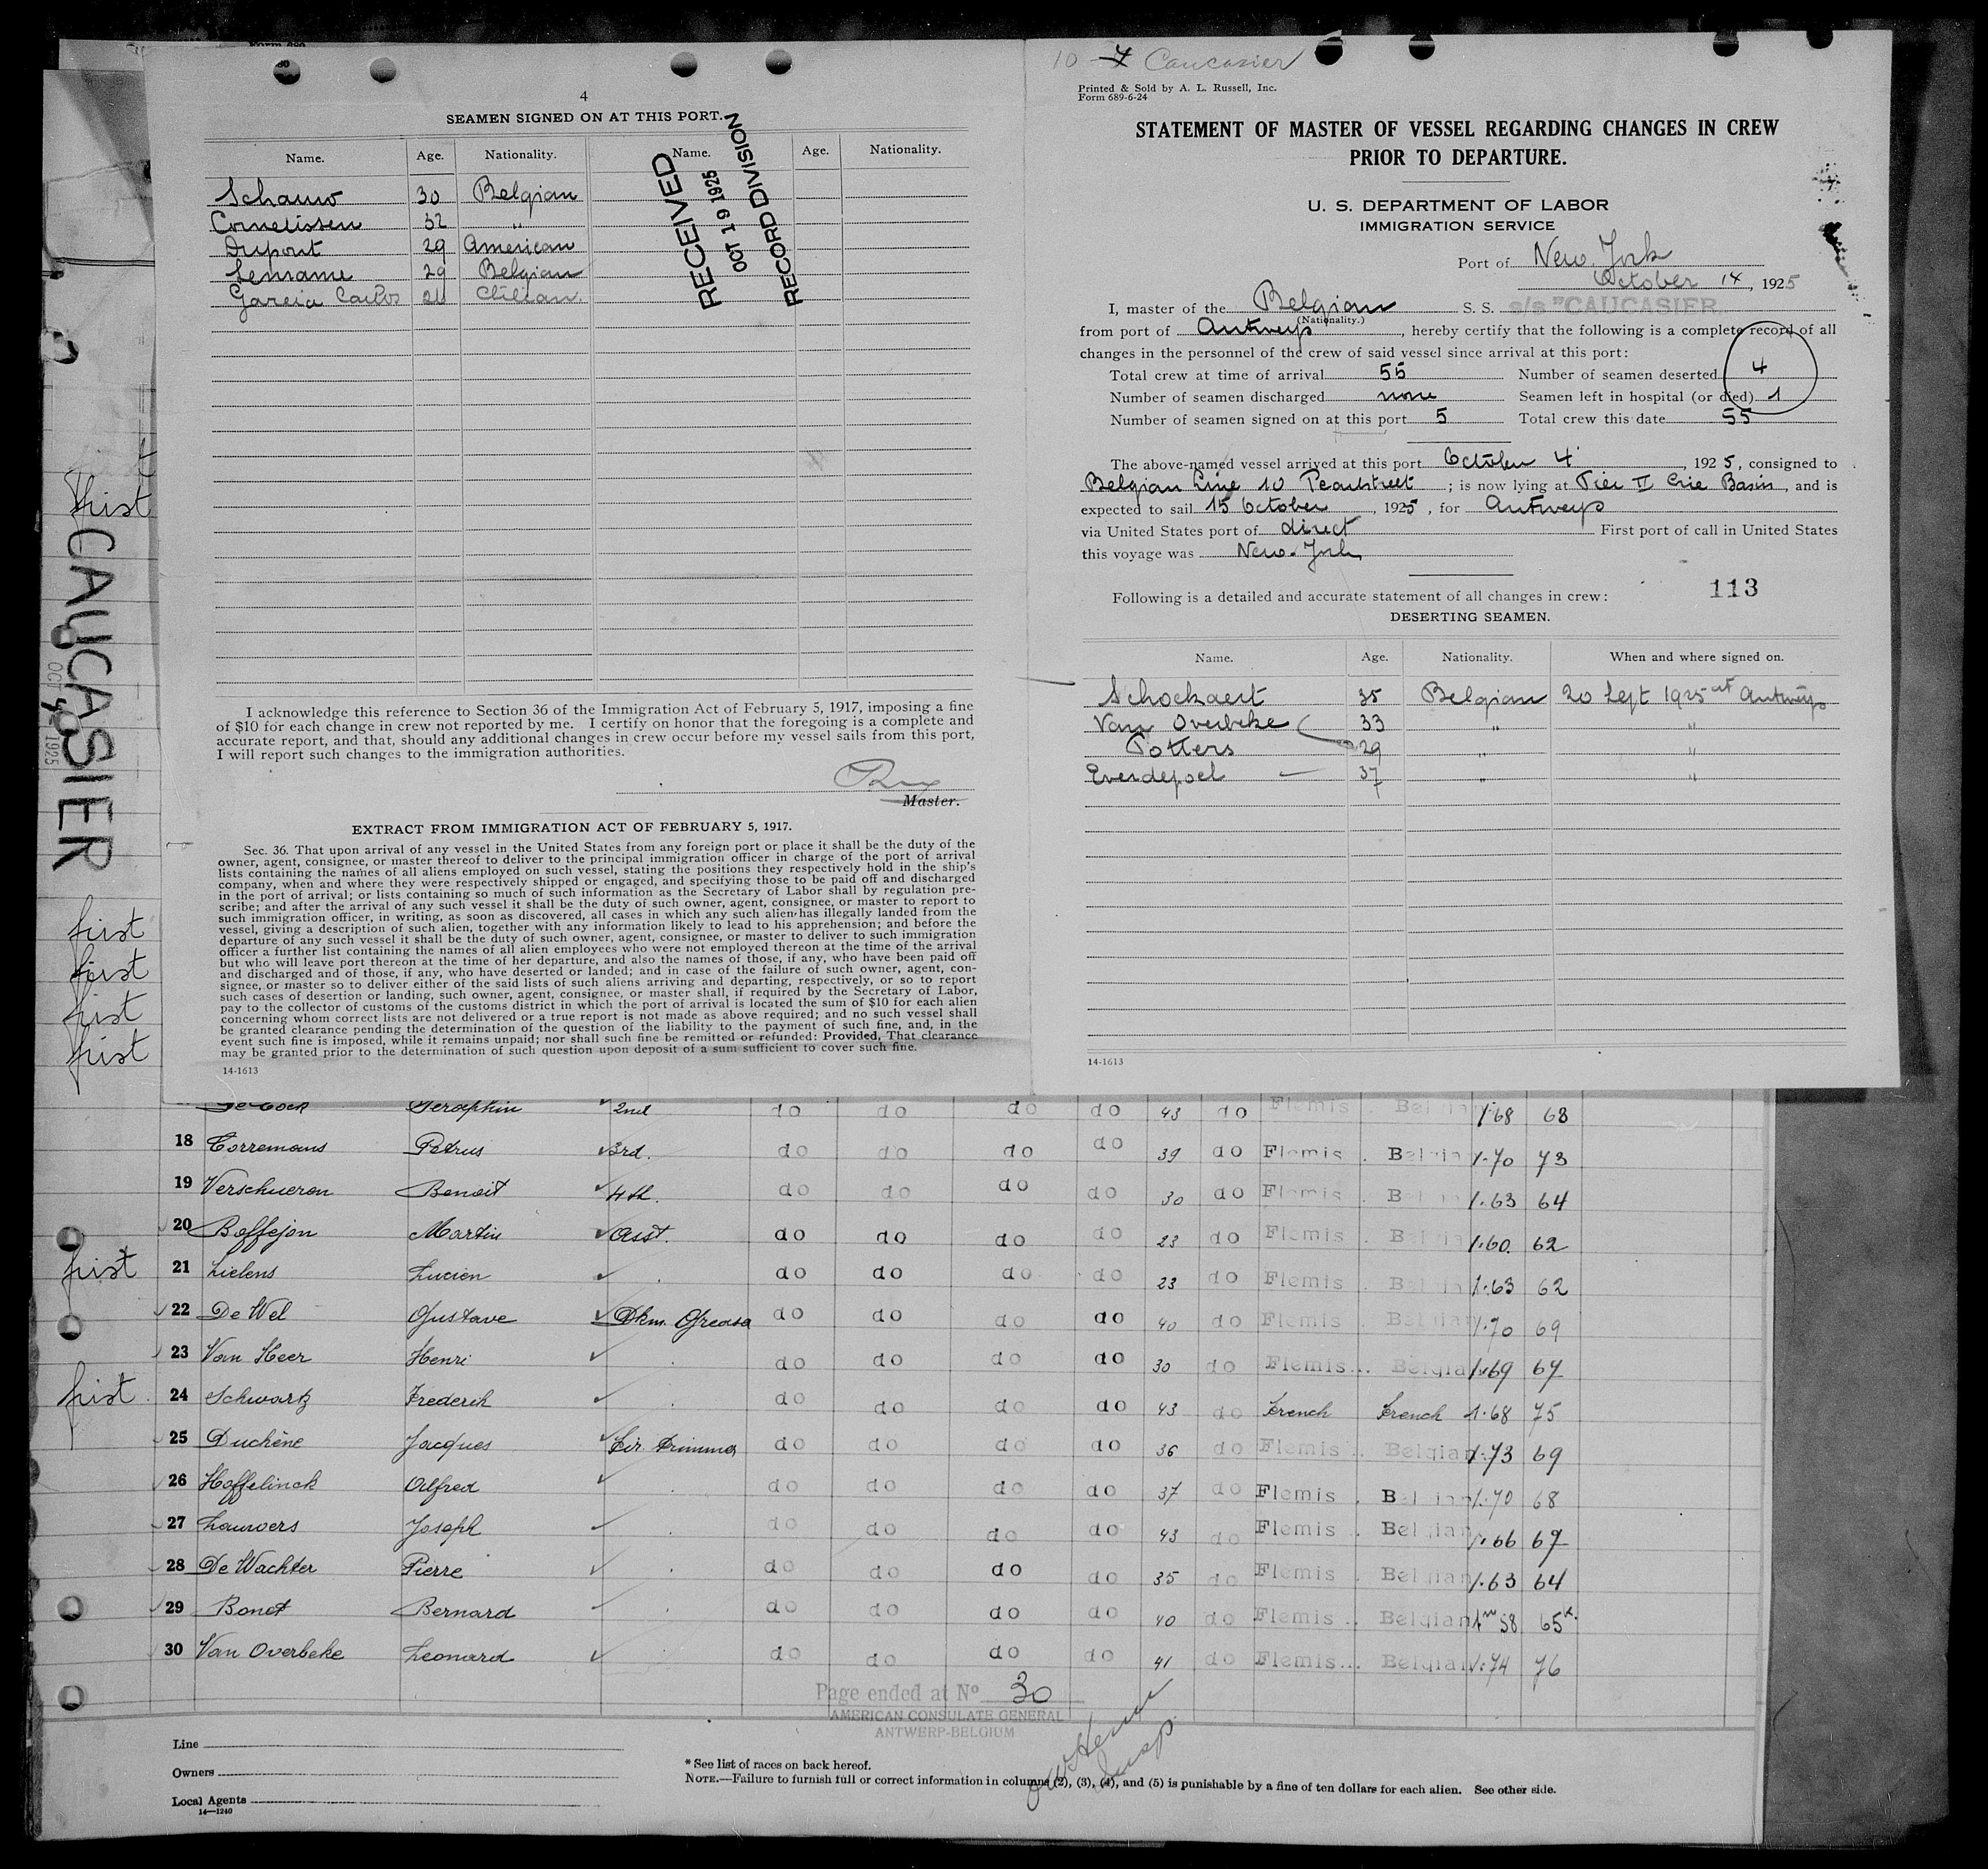 4
SEAMEN SIGNED ON AT THIS PORT.
Name. Age. Nationality. Name. Age. Nationality.
Schauw 30 Belgian
Cornelissen 32 "
Dupont 29 American
Lemame 29 Belgian
Garcia Carlos 26 Chilian
RECEIVED
OCT 19 1925
RECORD DIVISION
I acknowledge this reference to Section 36 of the Immigration Act of February 5, 1917, imposing a fine
of $10 for each change in crew not reported by me. I certify on honor that the foregoing is a complete and
accurate report, and that, should any additional changes in crew occur before my vessel sails from this port,
I will report such changes to the immigration authorities.
Master.
EXTRACT FROM IMMIGRATION ACT OF FEBRUARY 5, 1917.
Sec. 36. That upon arrival of any vessel in the United States from any foreign port or place it shall be the duty of the
owner, agent, consignee, or master thereof to deliver to the principal immigration officer in charge of the port of arrival
lists containing the names of all aliens employed on such vessel, stating the positions they respectively hold in the ship's
company, when and where they were respectively shipped or engaged, and specifying those to be paid off and discharged
in the port of arrival; or lists containing so much of such information as the Secretary of Labor shall by regulation pre-
scribe; and after the arrival of any such vessel it shall be the duty of such owner, agent, consignee, or master to report to
such immigration officer, in writing, as soon as discovered, all cases in which any such alien has illegally landed from the
vessel, giving a description of such alien, together with any information likely to lead to his apprehension; and before the
departure of any such vessel it shall be the duty of such owner, agent, consignee, or master to deliver to such immigration
officer a further list containing the names of all alien employees who were not employed thereon at the time of the arrival
but who will leave port thereon at the time of her departure, and also the names of those, if any, who have been paid off
and discharged and of those, if any, who have deserted or landed; and in case of the failure of such owner, agent, con-
signee, or master so to deliver either of the said lists of such aliens arriving and departing, respectively, or so to report
such cases of desertion or landing, such owner, agent, consignee, or master shall, if required by the Secretary of Labor,
pay to the collector of customs of the customs district in which the port of arrival is located the sum of $10 for each alien
concerning whom correct lists are not delivered or a true report is not made as above required; and no such vessel shall
be granted clearance pending the determination of the question of the liability to the payment of such fine, and, in the
event such fine is imposed, while it remains unpaid; nor shall such fine be remitted or refunded: Provided, That clearance
may be granted prior to the determination of such question upon deposit of a sum sufficient to cover such fine.
14-1613
10 Caucasier
Printed & Sold by A. L. Russell, Inc.
Form 689-6-24
STATEMENT OF MASTER OF VESSEL REGARDING CHANGES IN CREW
PRIOR TO DEPARTURE.
U. S. DEPARTMENT OF LABOR
IMMIGRATION SERVICE
Port of New York
October 14, 1925
I, master of the Belgian S. S. s/s "CAUCASIER
(Nationality.)
from port of Antwerp, hereby certify that the following is a complete record of all
changes in the personnel of the crew of said vessel since arrival at this port:
Total crew at time of arrival 55 Number of seamen deserted 4
Number of seamen discharged none Seamen left in hospital (or died) 1
Number of seamen signed on at this port 5 Total crew this date 55
The above-named vessel arrived at this port October 4, 1925, consigned to
Belgian Line 10 Pearlstreet; is now lying at Pier II Erie Basin, and is
expected to sail 15 October, 1925, for Antwerp
via United States port of direct First port of call in United States
this voyage was New-York
Following is a detailed and accurate statement of all changes in crew: 113
DESERTING SEAMEN.
Name. Age. Nationality. When and where signed on.
Schockaert 35 Belgian 20 Sept 1925 at Antwerp
Van Overbeke 33 " "
Potters 29 " "
Everdepoel 37 " "
14-1613
first
CAUCASIER
OCT 1925
first
first
first
first
first
first
De Cock Seraphin 2nd do do do do 43 do Flemis. Belgian 1.68 68
18 Torremans Petrus 3rd. do do do do 39 do Flemis. Belgian 1.70 73
19 Verschueren Benoit 4th. do do do do 30 do Flemis. Belgian 1.63 64
20 Boffejon Martin Asst. do do do do 23 do Flemis. Belgian 1.60 62
21 Lielens Lucien do do do do 23 do Flemis. Belgian 1.63 62
22 De Wel Gustave Dkm. Greaser do do do do 40 do Flemis. Belgian 1.70 69
23 Van Heer Henri do do do do 30 do Flemis... Belgian 1.69 67
24 Schwartz Frederik do do do do 43 do French French 1.68 75
25 Duchêne Jacques Fir. Trimmer do do do do 36 do Flemis.. Belgian 1.73 69
26 Hoffelinck Alfred do do do do 37 do Flemis. Belgian 1.70 68
27 Lauwers Joseph do do do do 43 do Flemis. Belgian 1.66 67
28 De Wachter Pierre do do do do 35 do Flemis. Belgian 1.63 64
29 Bonet Bernard do do do do 40 do Flemis.. Belgian 1m58 65k.
30 Van Overbeke Leonard do do do do 41 do Flemis... Belgian 1.74 76
Page ended at No 30
AMERICAN CONSULATE GENERAL
ANTWERP-BELGIUM
Line
Owners
Local Agents
14—1240
* See list of races on back hereof.
NOTE.—Failure to furnish full or correct information in columns (2), (3), (4), and (5) is punishable by a fine of ten dollars for each alien. See other side.